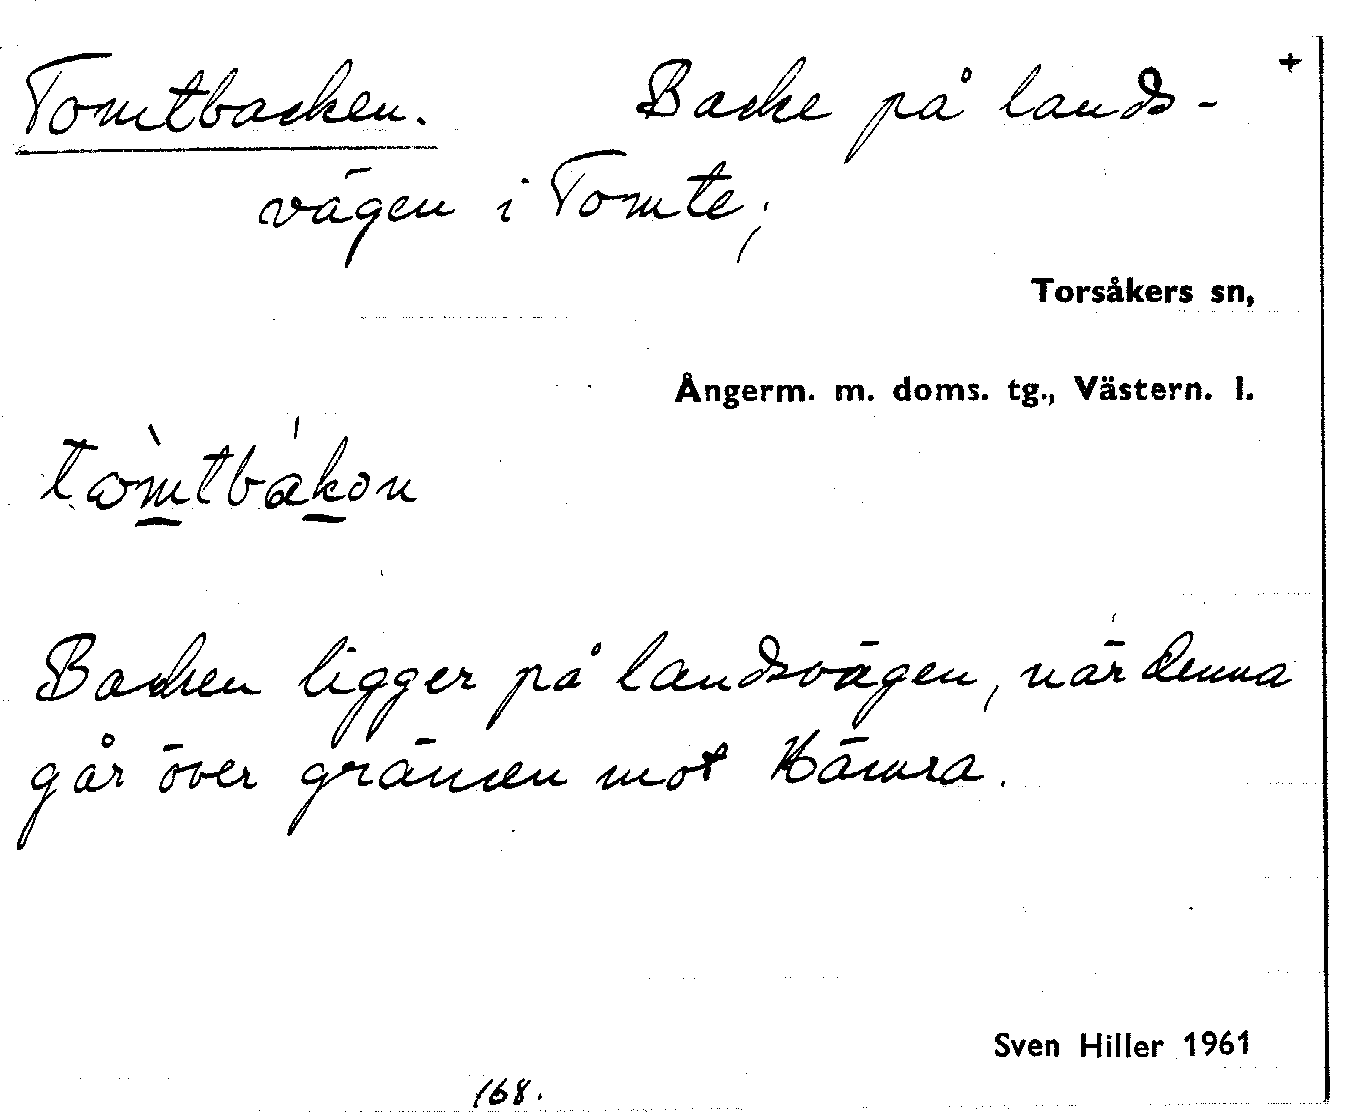 Tomtbacken. Backe på lands- +
vägen i Tomte;
Torsåkers sn,
Ångerm. m. doms. tg., Västern. l.
Backen ligger på landsvägen, när denna
går över gränsen mot Hämra.
Sven Hiller 1961
168.